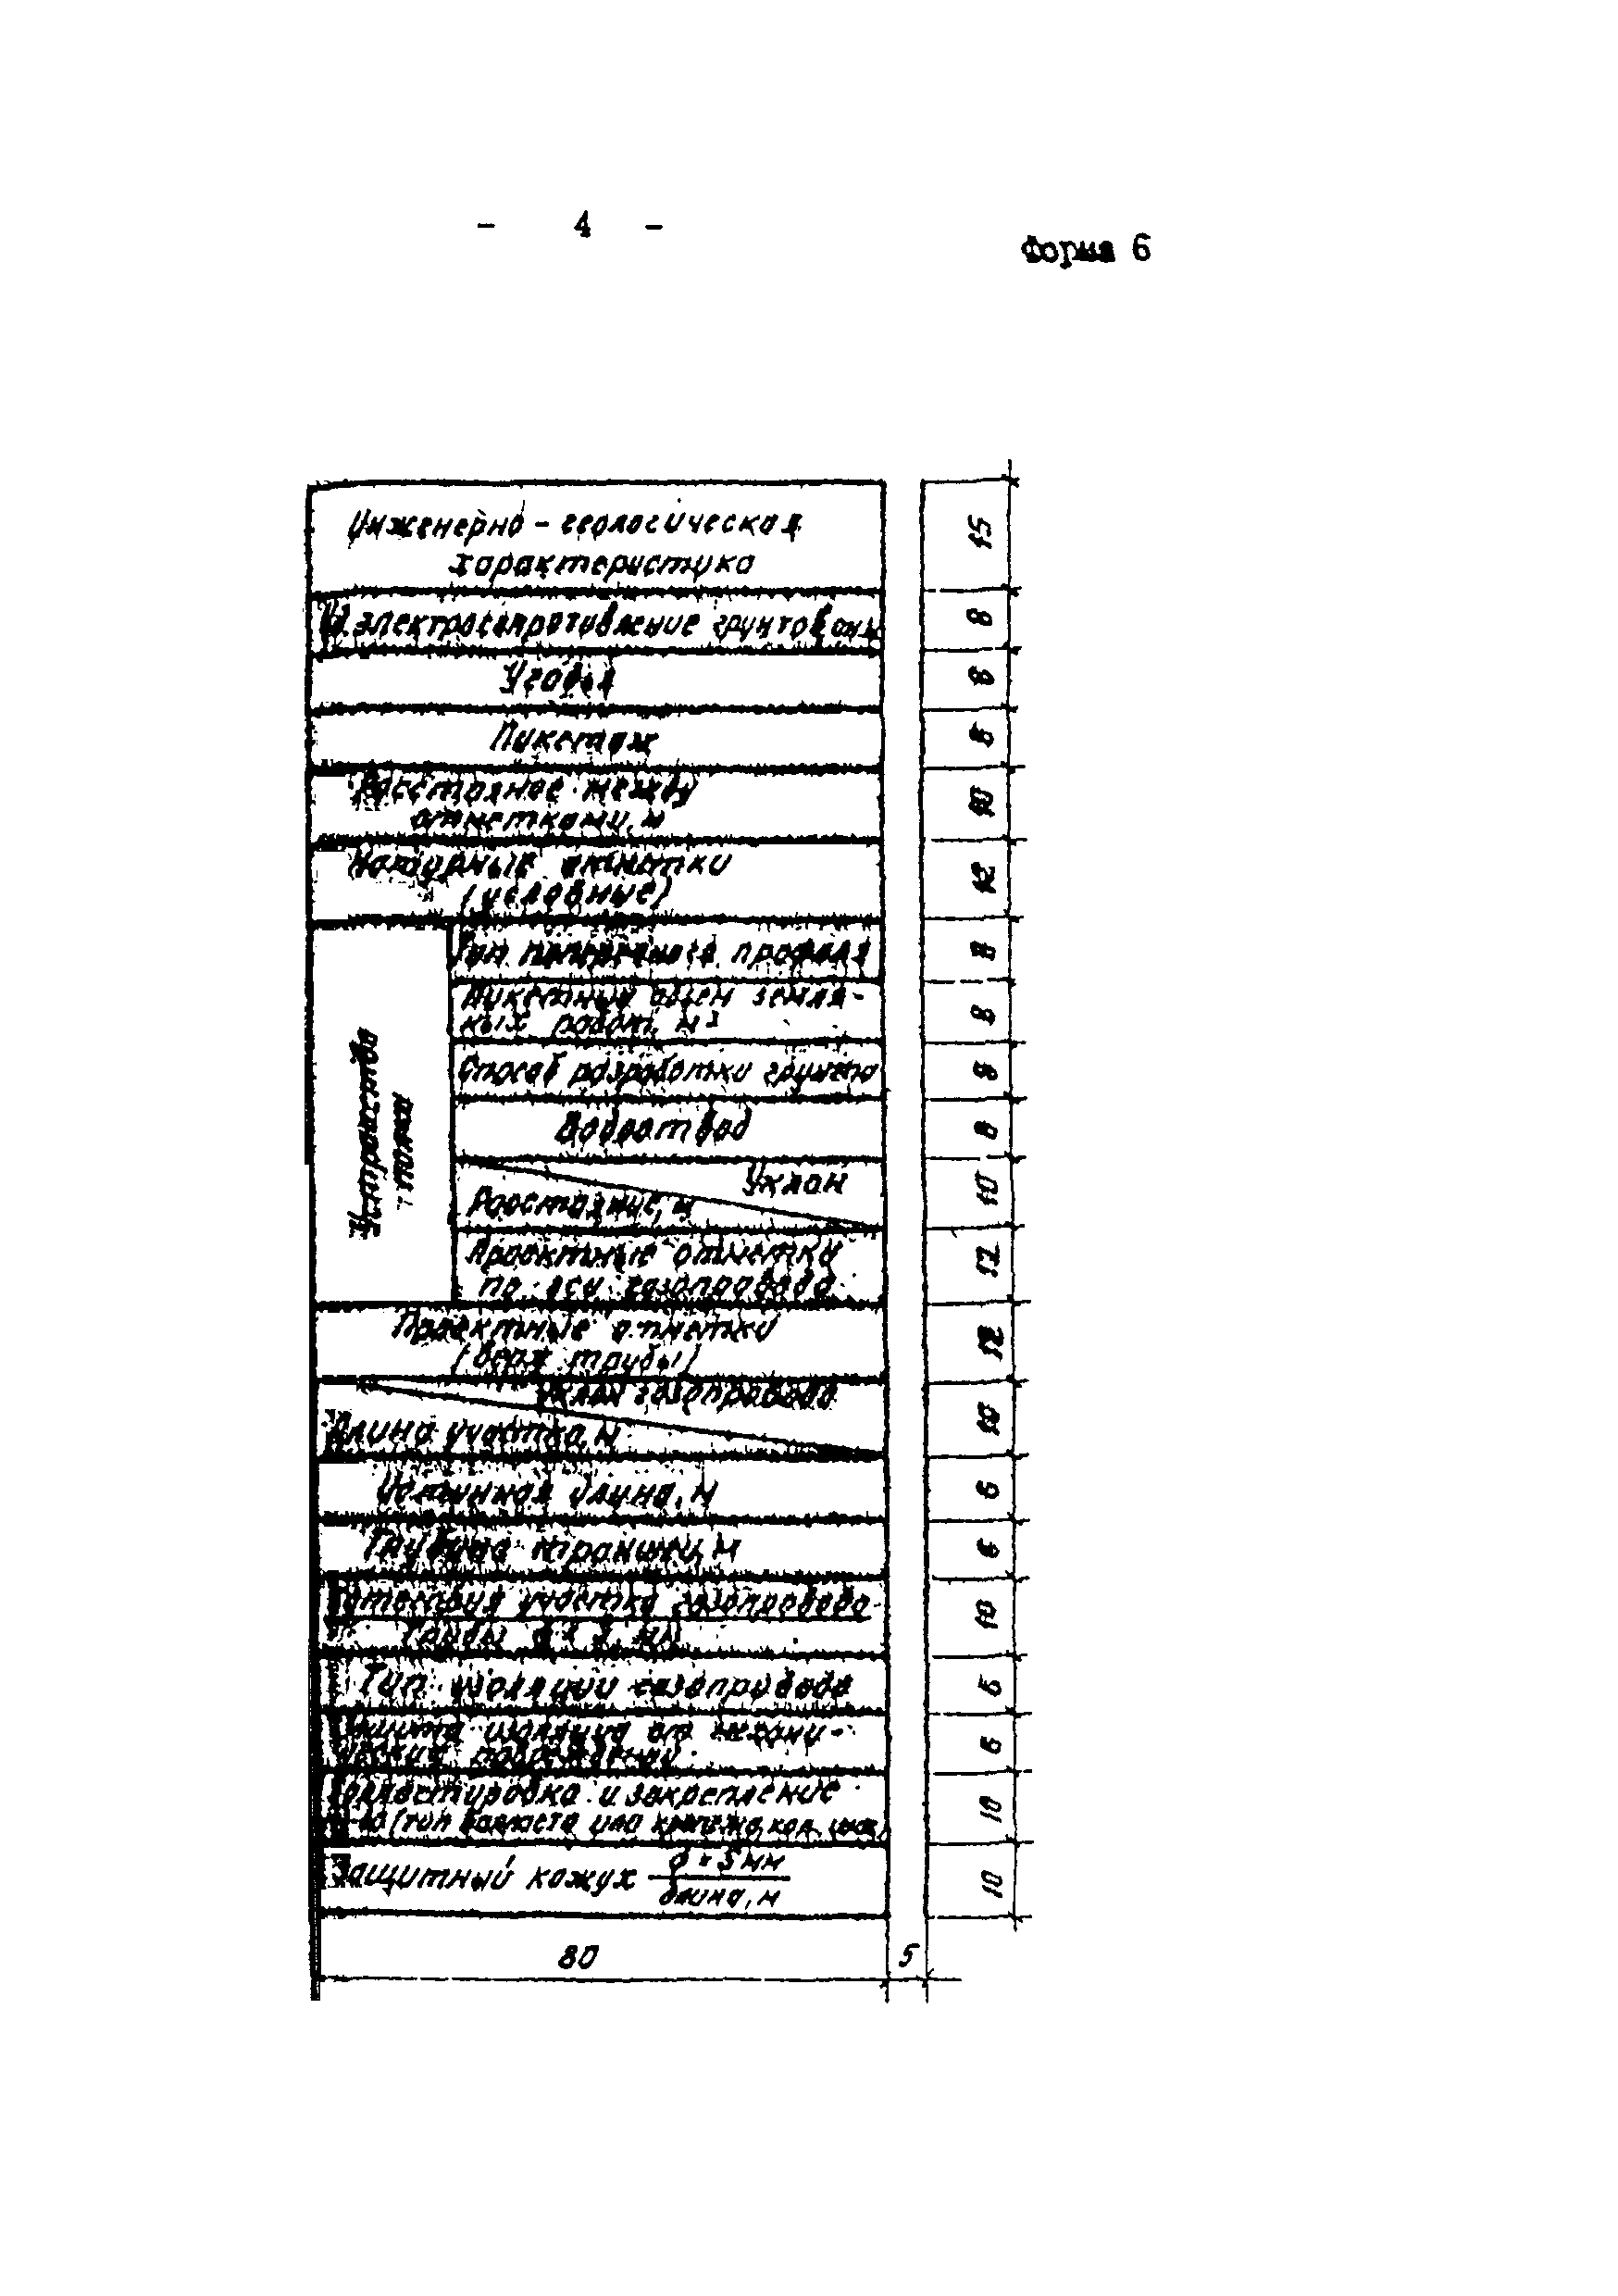 - 4 -
Форма 6
Инженерно-геологическая
характеристика
15
Уд. электросопротивление грунтов, ом.м
8
Угодья
8
Пикетаж
8
Расстояние между
отметками, м
10
Натурные отметки
(условные)
12
Устройство
полки
Тип поперечного профиля
8
Пикетный объем земля-
ных работ, м³
8
Способ разработки грунта
8
Водоотвод
8
Уклон
Расстояние, м
10
Проектные отметки
по оси газопровода
12
Проектные отметки
(верх трубы)
12
Уклон газопровода
Длина участка, м
10
Истинная длина, м
Глубина траншеи, м
Категория участка газопровода
Трубы
10
Тип изоляции газопровода
Защита изоляции от механи-
ческих повреждений
Балластировка и закрепление
(тип балласта или крепежа, кол. шаг)
10
Защитный кожух
длина, м
10
80
5